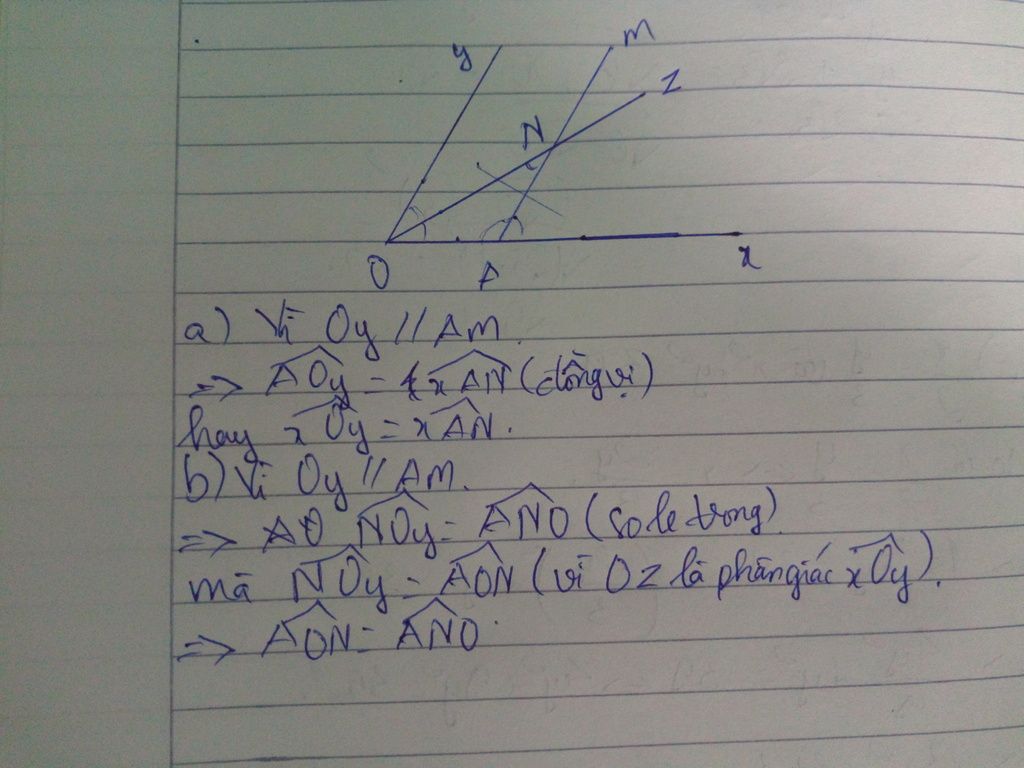 y M
z
N
O A x
a) Vì Oy // AM.
=> AOy = xAN (đồng vị)
hay xOy = xAN.
b) Vì Oy // AM.
=> NOy = ANO (so le trong)
mà NOy = AON (vì Oz là phân giác xOy).
=> AON = ANO.